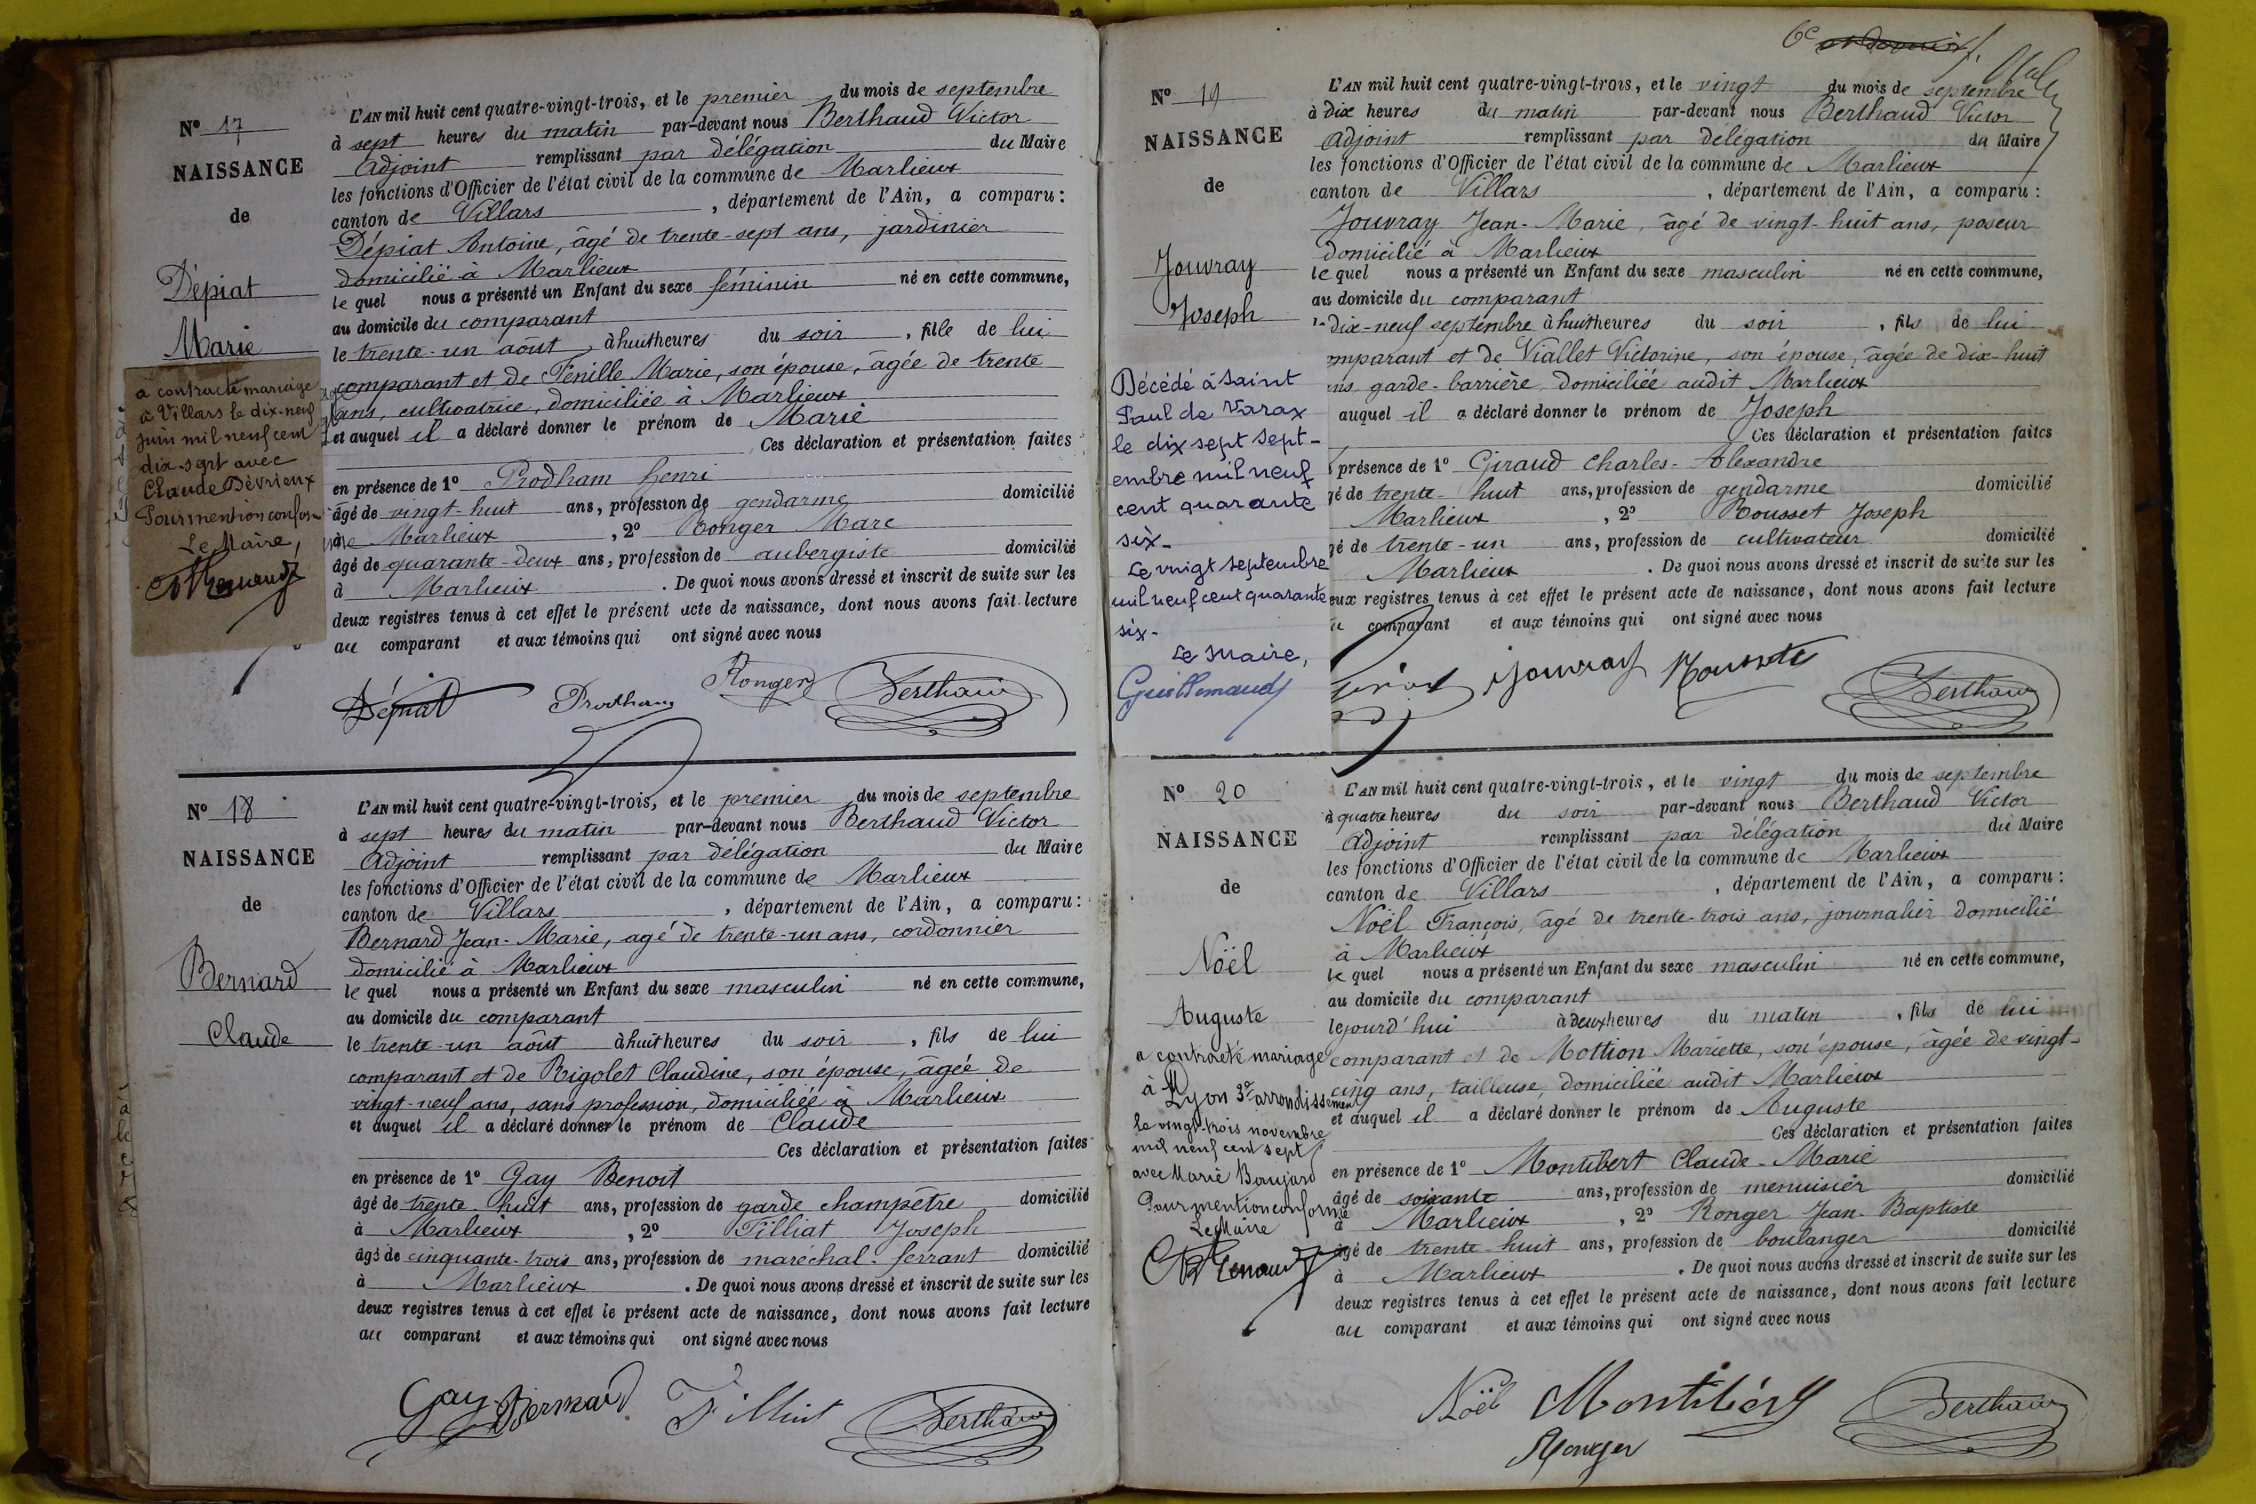 Nº 17
NAISSANCE
de
Dépiat
Marie
a contracté mariage
à Villars le dix-neuf
juin mil neuf cent
dix-sept avec
Claude Dévrieux
Pour mention conforme
Le Maire,
L'AN mil huit cent quatre-vingt-trois, et le premier du mois de septembre
à sept heures du matin par-devant nous Berthaud Victor
Adjoint remplissant par délégation du Maire
les fonctions d'Officier de l'état civil de la commune de Marlieux
canton de Villars, département de l'Ain, a comparu :
Dépiat Antoine, âgé de trente-sept ans, jardinier
domicilié à Marlieux
lequel nous a présenté un Enfant du sexe féminin né en cette commune,
au domicile du comparant
le trente-un août à huit heures du soir, fille de lui
comparant et de Fenille Marie, son épouse, âgée de trente
ans, cultivatrice, domiciliée à Marlieux
et auquel il a déclaré donner le prénom de Marie
Ces déclaration et présentation faites
en présence de 1º Prodham henri
âgé de vingt-huit ans, profession de gendarme domicilié
à Marlieux, 2º Ronger Marc
âgé de quarante-deux ans, profession de aubergiste domicilié
à Marlieux. De quoi nous avons dressé et inscrit de suite sur les
deux registres tenus à cet effet le présent acte de naissance, dont nous avons fait lecture
au comparant et aux témoins qui ont signé avec nous
Dépiat Prodham Ronger Berthaud
Nº 18
NAISSANCE
de
Bernard
Claude
L'AN mil huit cent quatre-vingt-trois, et le premier du mois de septembre
à sept heures du matin par-devant nous Berthaud Victor
Adjoint remplissant par délégation du Maire
les fonctions d'Officier de l'état civil de la commune de Marlieux
canton de Villars, département de l'Ain, a comparu :
Bernard Jean-Marie, agé de trente-un ans, cordonnier
domicilié à Marlieux
lequel nous a présenté un Enfant du sexe masculin né en cette commune,
au domicile du comparant
le trente-un août à huit heures du soir, fils de lui
comparant et de Rigolet Claudine, son épouse, âgée de
vingt-neuf ans, sans profession, domiciliée à Marlieux
et auquel il a déclaré donner le prénom de Claude
Ces déclaration et présentation faites
en présence de 1º Gay Benoit
âgé de trente-huit ans, profession de garde champêtre domicilié
à Marlieux, 2º Filliat Joseph
âgé de cinquante-trois ans, profession de maréchal-ferrant domicilié
à Marlieux. De quoi nous avons dressé et inscrit de suite sur les
deux registres tenus à cet effet le présent acte de naissance, dont nous avons fait lecture
au comparant et aux témoins qui ont signé avec nous
Gay Bernard Filliat Berthaud
Nº 19
NAISSANCE
de
Jouvray
Joseph
Décédé à Saint
Paul de Varax
le dix sept sept-
embre mil neuf
cent quarante
six-
Le vingt septembre
mil neuf cent quarante
six-
Le Maire,
Guillemaud
6e
L'AN mil huit cent quatre-vingt-trois, et le vingt du mois de septembre
à dix heures du matin par-devant nous Berthaud Victor
Adjoint remplissant par délégation du Maire
les fonctions d'Officier de l'état civil de la commune de Marlieux
canton de Villars, département de l'Ain, a comparu :
Jouvray Jean-Marie, âgé de vingt-huit ans, poseur
domicilié à Marlieux
lequel nous a présenté un Enfant du sexe masculin né en cette commune,
au domicile du comparant
dix-neuf septembre à huit heures du soir, fils de lui
omparant et de Viallet Victorine, son épouse, âgée de dix-huit
ans, garde-barrière, domiciliée audit Marlieux
auquel il a déclaré donner le prénom de Joseph
Ces déclaration et présentation faites
présence de 1º Giraud Charles-Alexandre
gé de trente-huit ans, profession de gendarme domicilié
Marlieux, 2º Rousset Joseph
gé de trente-un ans, profession de cultivateur domicilié
Marlieux. De quoi nous avons dressé et inscrit de suite sur les
eux registres tenus à cet effet le présent acte de naissance, dont nous avons fait lecture
comparant et aux témoins qui ont signé avec nous
Jouvray Rousset Berthaud
Nº 20
NAISSANCE
de
Noël
Auguste
a contracté mariage
à Lyon 3e arrondissement
le vingt-trois novembre
mil neuf cent sept
avec Marie Boujard
Pour mention conforme
Le Maire
L'AN mil huit cent quatre-vingt-trois, et le vingt du mois de septembre
à quatre heures du soir par-devant nous Berthaud Victor
Adjoint remplissant par délégation du Maire
les fonctions d'Officier de l'état civil de la commune de Marlieux
canton de Villars, département de l'Ain, a comparu :
Noël François, âgé de trente-trois ans, journalier domicilié
à Marlieux
lequel nous a présenté un Enfant du sexe masculin né en cette commune,
au domicile du comparant
lejourd'hui à deux heures du matin, fils de lui
comparant et de Mottion Mariette, son épouse, âgée de vingt-
cinq ans, tailleuse, domiciliée audit Marlieux
et auquel il a déclaré donner le prénom de Auguste
Ces déclaration et présentation faites
en présence de 1º Montibert Claude-Marie
âgé de soixante ans, profession de menuisier domicilié
à Marlieux, 2º Ronger Jean-Baptiste
âgé de trente-huit ans, profession de boulanger domicilié
à Marlieux. De quoi nous avons dressé et inscrit de suite sur les
deux registres tenus à cet effet le présent acte de naissance, dont nous avons fait lecture
au comparant et aux témoins qui ont signé avec nous
Noël Montibert Berthaud
Ronger